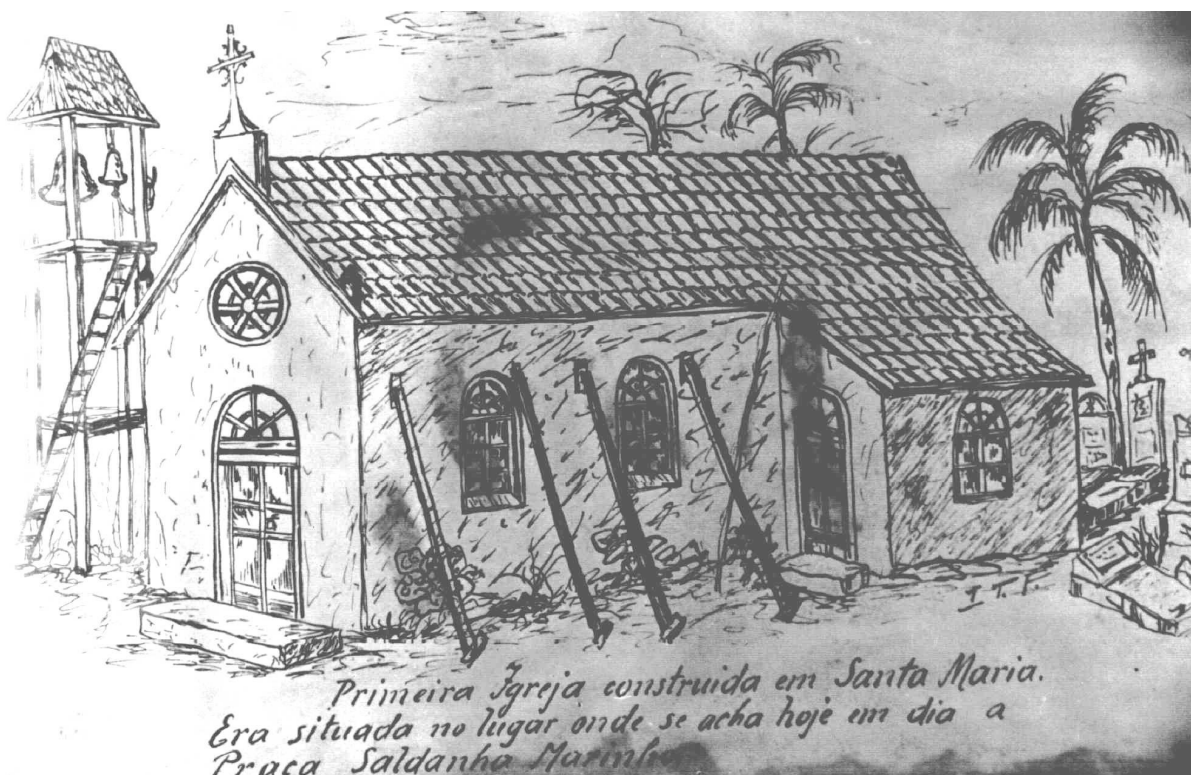 I. T. T.
Primeira Igreja construida em Santa Maria.
Era situada no lugar onde se acha hoje em dia a
Praça Saldanha Marinho